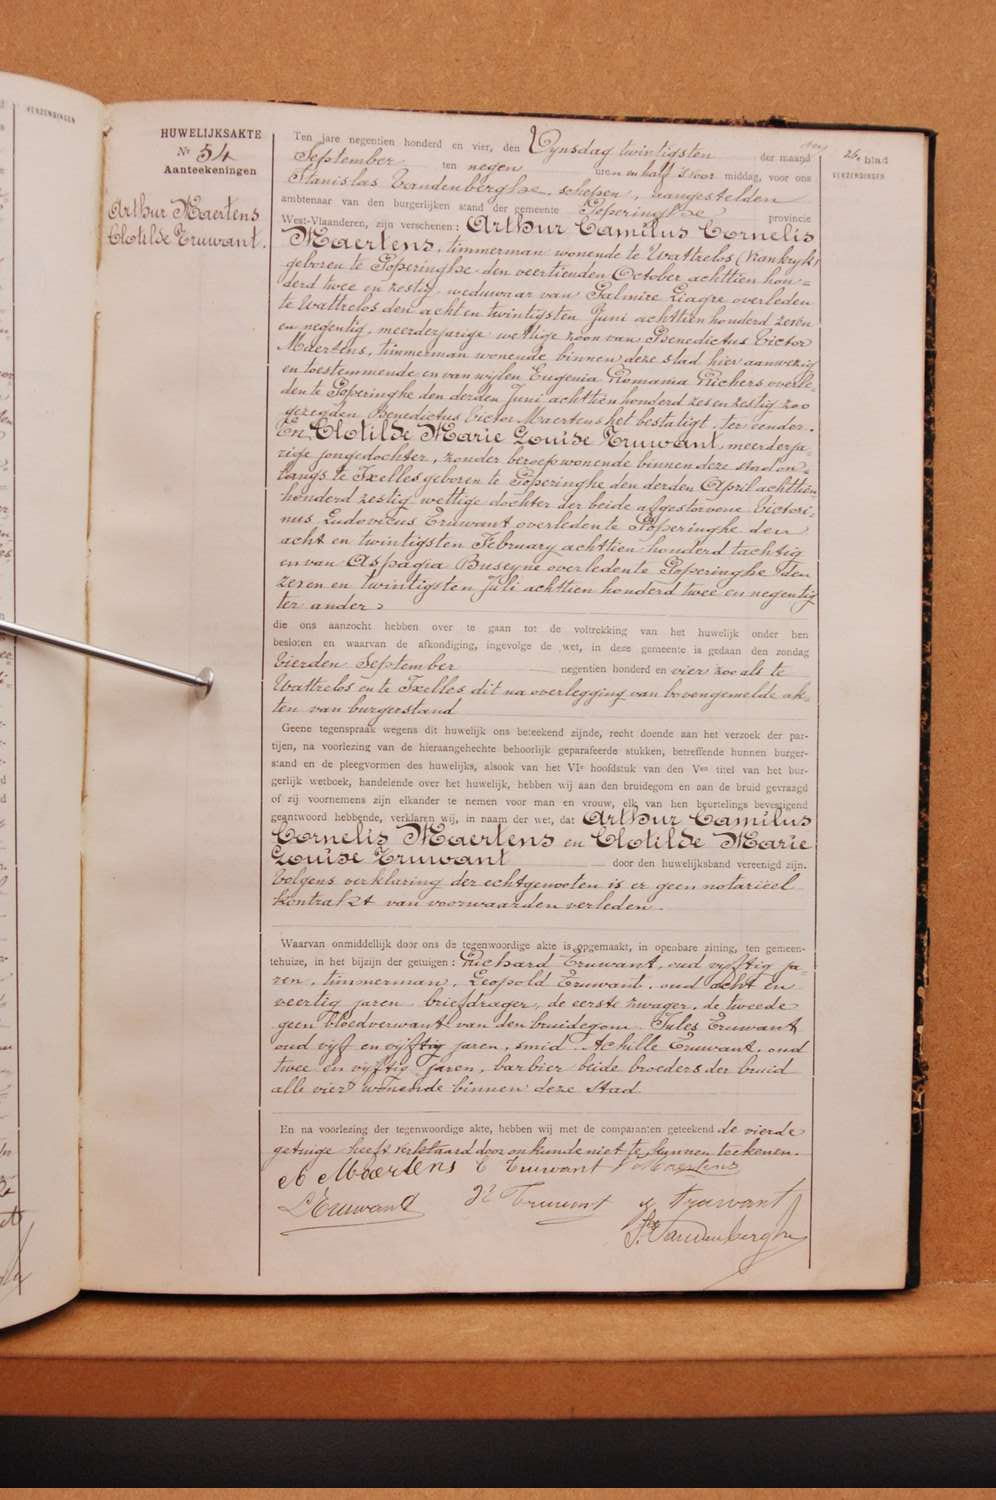 VERZENDINGEN
HUWELIJKSAKTE
Nr 54
Aanteekeningen
Arthur Maertens
Clotilde Truwant.
26e blad
VERZENDINGEN
Ten jare negentien honderd en vier, den Dynsdag twintigsten der maand
September ten negen uren en half s'voor middag, voor ons
Stanislas Vandenberghe, schepen, aangestelden
ambtenaar van den burgerlijken stand der gemeente Poperinghe provincie
West-Vlaanderen, zijn verschenen: Arthur Camilus Cornelis
Maertens, timmerman wonende te Wattrelos (Frankryk)
geboren te Poperinghe den veertienden October achttien hon=
derd twee en zestig weduwaar van Palmire Liagre overleden
te Wattrelos den acht en twintigsten Juni achttien honderd zeven
en negentig, meerderjarige wettige zoon van Benedictus Victor
Maertens, timmerman wonende binnen deze stad hier aanwezig
en toestemmende en van wijlen Eugenia Romania Richers overle=
den te Poperinghe den derden Juni achttien honderd zes en zestig zoo
gezegden Benedictus Victor Maertens het bestatigt, ter eender.
En, Clotilde Marie Louise Truwant, meerderja=
rige jongedochter, zonder beroep wonende binnen deze stad on=
langs te Ixelles geboren te Poperinghe den derden April achttien
honderd zestig wettige dochter der beide afgestorvene Victori=
nus Ludovicus Truwant overleden te Poperinghe den
acht en twintigsten February achttien honderd tachtig
en van Aspagia Buseyne overleden te Poperinghe den
zeven en twintigsten Juli achttien honderd twee en negentig
ter ander
die ons aanzocht hebben over te gaan tot de voltrekking van het huwelijk onder hen
besloten en waarvan de afkondiging, ingevolge de wet, in deze gemeente is gedaan den zondag
vierden September negentien honderd en vier zoo als te
Wattrelos en te Ixelles dit na overlegging van bovengemelde ak=
ten van burgerstand
Geene tegenspraak wegens dit huwelijk ons beteekend zijnde, recht doende aan het verzoek der par-
tijen, na voorlezing van de hieraangehechte behoorlijk geparafeerde stukken, betreffende hunnen burger-
stand en de pleegvormen des huwelijks, alsook van het VIe hoofdstuk van den Ven titel van het bur-
gerlijk wetboek, handelende over het huwelijk, hebben wij aan den bruidegom en aan de bruid gevraagd
of zij voornemens zijn elkander te nemen voor man en vrouw, elk van hen beurtelings bevestigend
geantwoord hebbende, verklaren wij, in naam der wet, dat Arthur Camilus
Cornelis Maertens en Clotilde Marie
Louise Truwant door den huwelijksband vereenigd zijn.
Volgens verklaring der echtgenooten is er geen notarieel
kontrakt van voorwaarden verleden.
Waarvan onmiddellijk door ons de tegenwoordige akte is opgemaakt, in openbare zitting, ten gemeen-
tehuize, in het bijzijn der getuigen: Richard Truwant, oud vijftig ja=
ren, timmerman, Leopold Truwant, oud acht en
veertig jaren briefdrager, de eerste zwager, de tweede
geen bloedverwant van den bruidegom. Jules Truwant
oud vijf en vijftig jaren, smid Achille Truwant, oud
twee en vijftig jaren, barbier beide broeders der bruid
alle vier wonende binnen deze stad
En na voorlezing der tegenwoordige akte, hebben wij met de comparanten geteekend de vierde
getuige heeft verklaard door onkunde niet te kunnen teekenen.
A Maertens C Truwant V Maertens
L Truwant R Truwant J Truwant
St. Vandenberghe